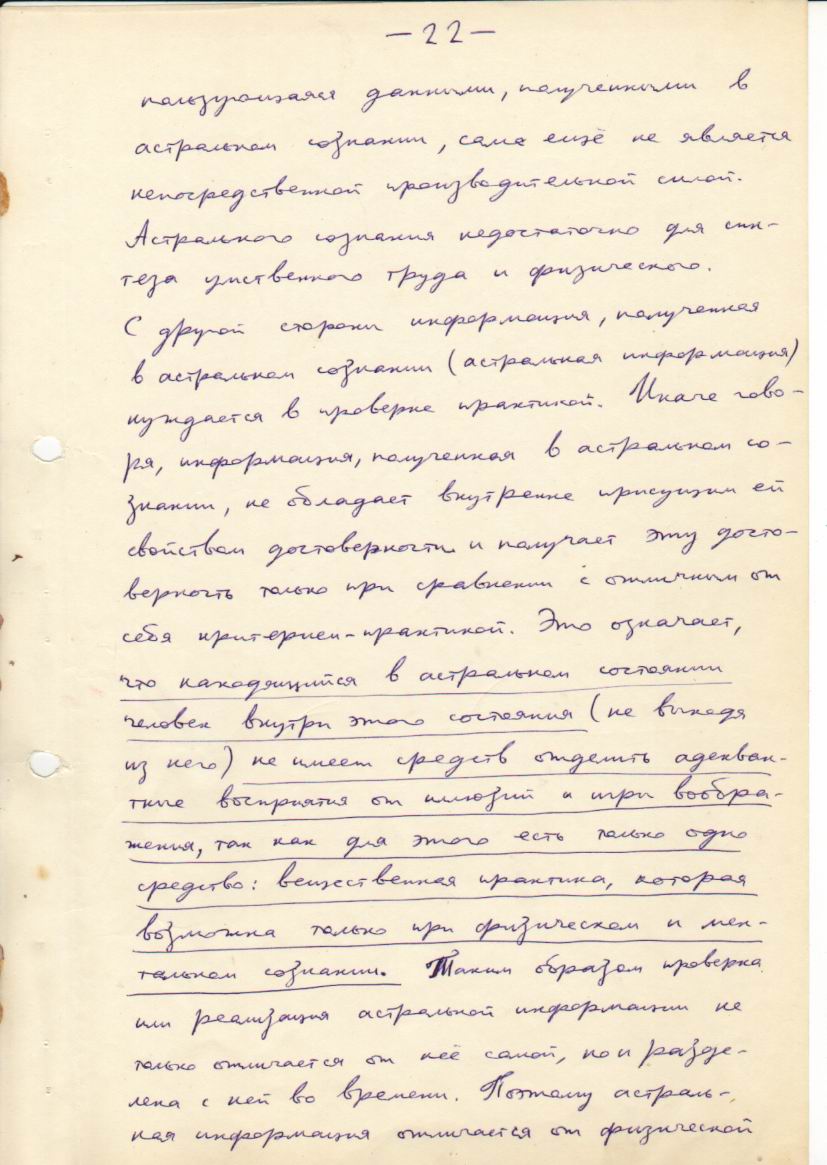 —22—
пользующаяся данными, полученными в
астральном сознании, сама ещё не является
непосредственной производительной силой.
Астрального сознания недостаточно для син-
теза умственного труда и физического.
С другой стороны информация, полученная
в астральном сознании (астральная информация)
нуждается в проверке практикой. Иначе гово-
ря, информация, полученная в астральном со-
знании, не обладает внутренне присущим ей
свойством достоверности и получает эту досто-
верность только при сравнении с отличным от
себя критерием-практикой. Это означает,
что находящийся в астральном состоянии
человек внутри этого состояния (не выходя
из него) не имеет средств отделить адекват-
тные восприятия от иллюзий и игры вообра-
жения, так как для этого есть только одно
средство: вещественная практика, которая
возможна только при физическом и мен-
тальном сознании. Таким образом проверка
или реализация астральной информации не
только отличается от неё самой, но и разде-
лена с ней во времени. Поэтому астраль-
ная информация отличается от физической